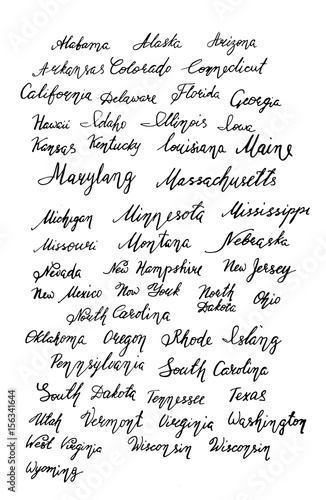 Alabama Alaska Arizona
Arkansas Colorado Connecticut
California Delaware Florida Georgia
Hawaii Idaho Illinois Iowa
Kansas Kentucky Louisiana Maine
Marylang Massachusetts
Michigan Minnesota Mississippi
Missouri Montana Nebraska
Nevada New Hampshire New Jersey
New Mexico New York North Dakota Ohio
North Carolina
Oklahoma Oregon Rhode Islang
Pennsylvania South Carolina
South Dakota Tennessee Texas
Utah Vermont Virginia Washington
West Virginia Wisconsin Wisconsin
Wyoming
156341644